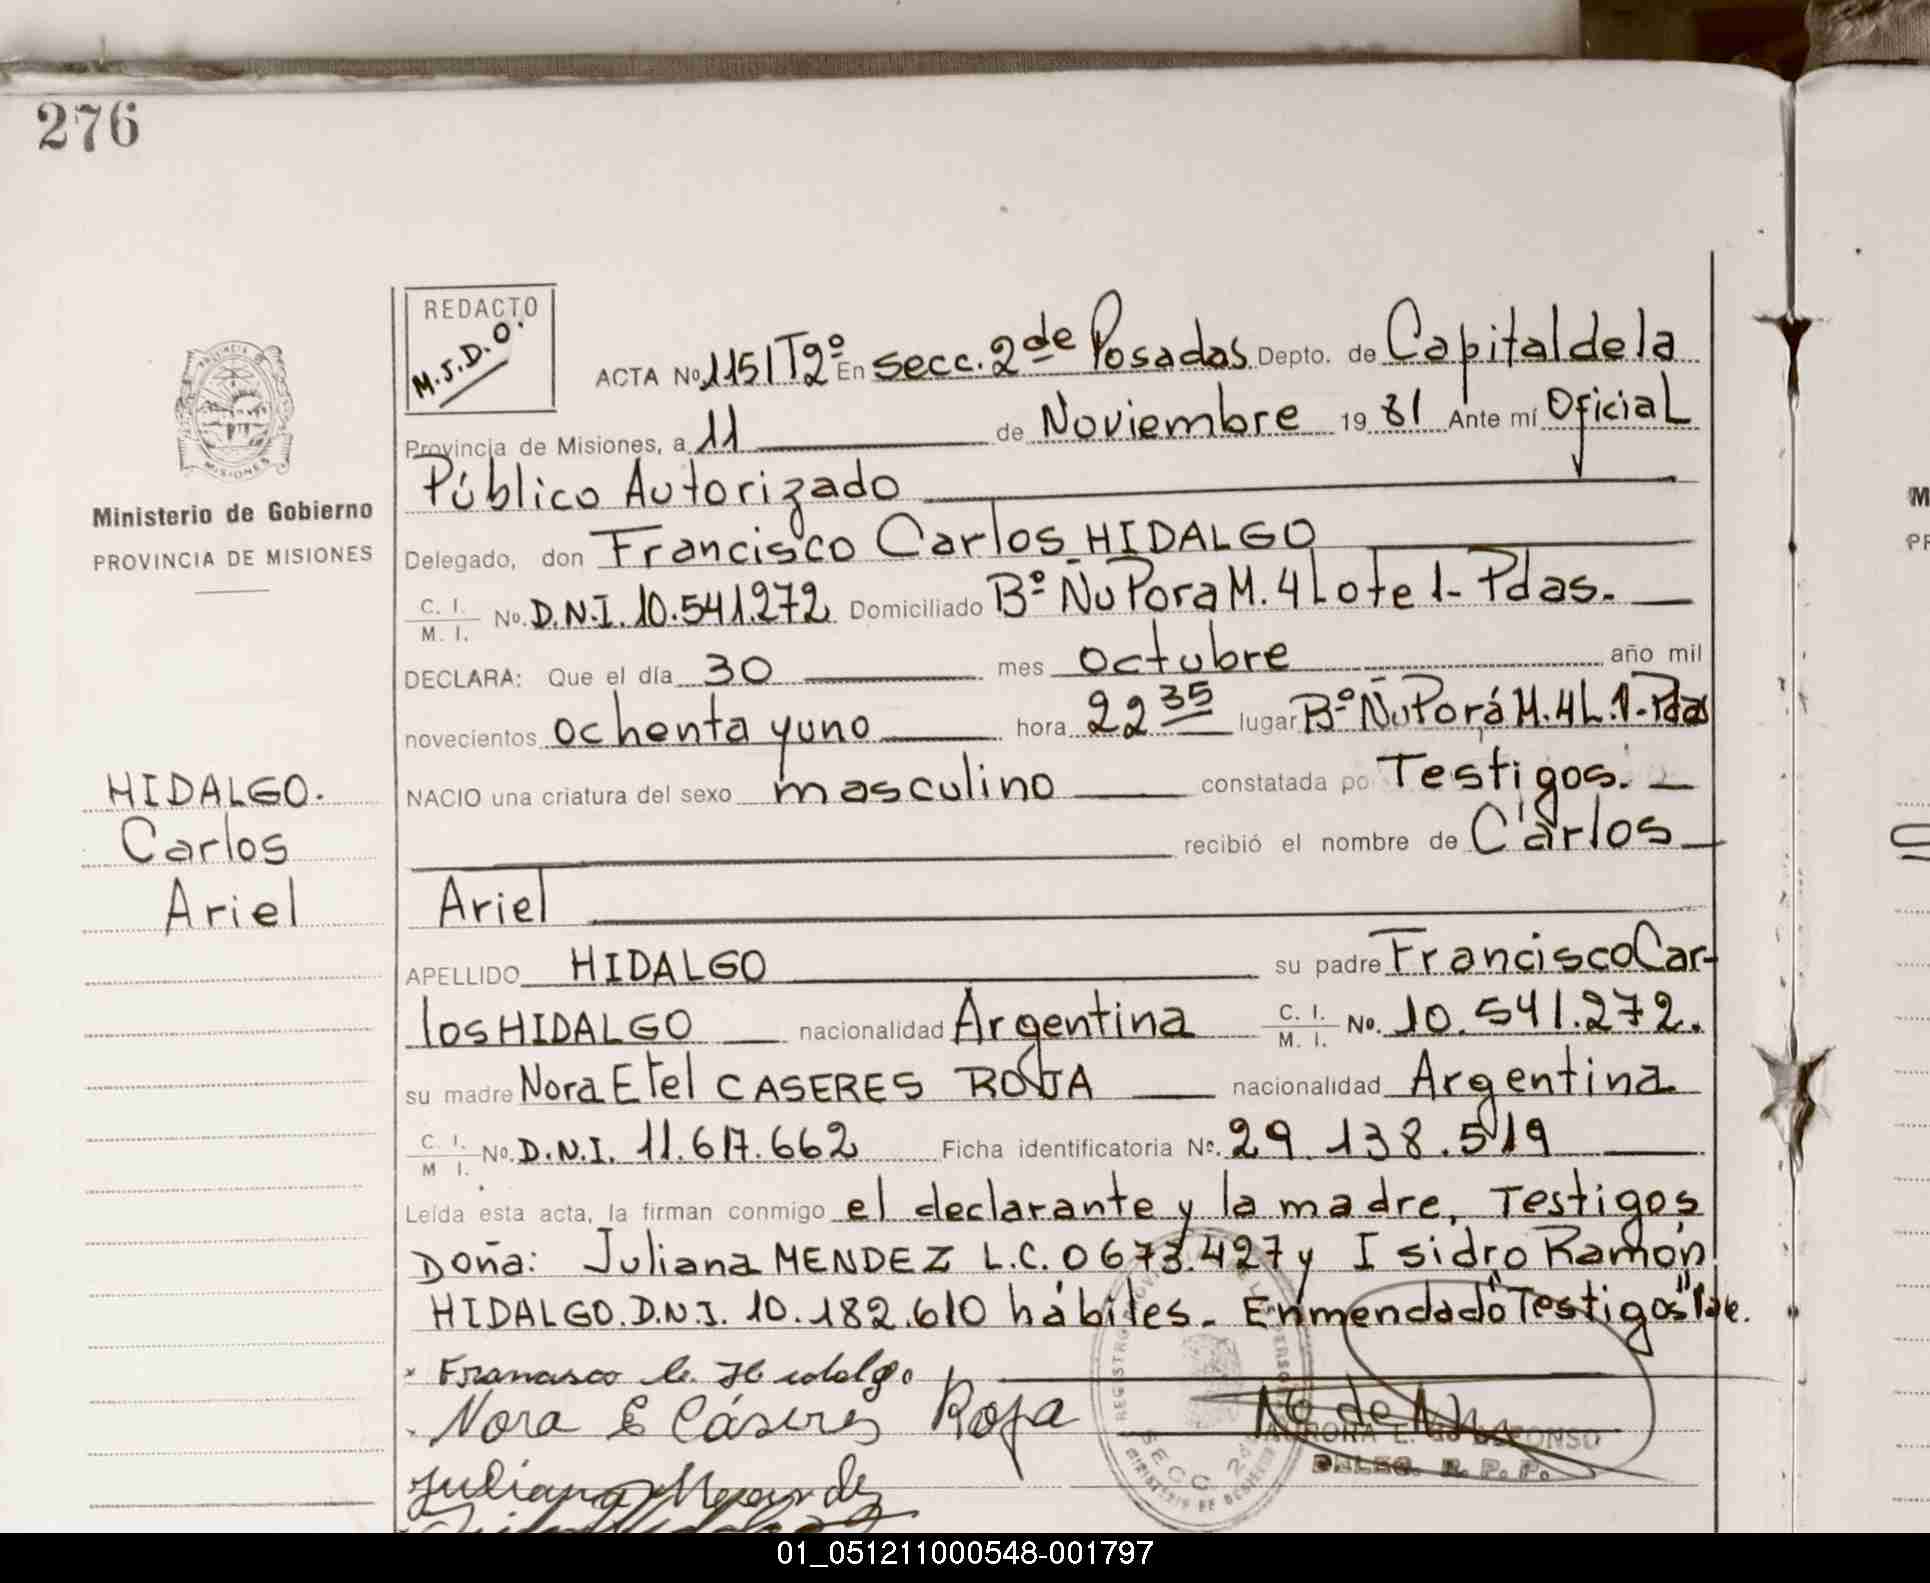 276
REDACTO
M.J.D.O.
ACTA No 1151 T2º En secc. 2de Posadas Depto. de Capital de la
Provincia de Misiones, a 11 de Noviembre 1981 Ante mí Oficial
Público Autorizado
Ministerio de Gobierno
PROVINCIA DE MISIONES
Delegado, don Francisco Carlos HIDALGO
C. I. / M. I. No. D.N.I. 10.541.272 Domiciliado Bº Ñu Pora M. 4 Lote 1- Pdas.
DECLARA: Que el día 30 mes octubre año mil
novecientos ochenta y uno hora 22 35 lugar Bº Ñu Porá M. 4 L. 1-Pdas
HIDALGO.
Carlos
Ariel
NACIO una criatura del sexo masculino constatada po Testigos.
recibió el nombre de Carlos
Ariel
APELLIDO HIDALGO su padre Francisco Car-
los HIDALGO nacionalidad Argentina C. I. / M. I. No. 10.541.272.
su madre Nora Etel CASERES ROJA nacionalidad Argentina
C. I. / M I. No. D.N.I. 11.617.662 Ficha identificatoria No. 29.138.519
Leída esta acta, la firman conmigo el declarante y la madre, Testigos
Doña: Juliana MENDEZ L.C. 0673.427 y Isidro Ramón
HIDALGO. D.N.I. 10.182.610 hábiles. Enmendado "Testigos" Vale.
Francisco C. Hidalgo
Nora E Cáseres Roja
Juliana Mendez
DELEG. R. P. P.
SECC 2da
01_051211000548-001797